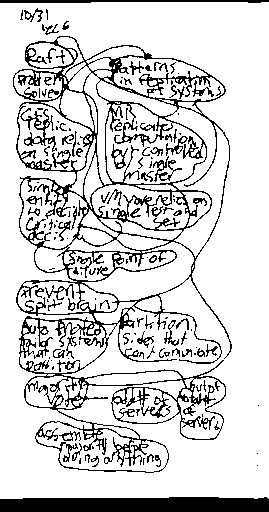 10/31
Lec 6
Raft
Patterns
in replication
FT systems
problem
solve
GFS
replic.
data relies
on single
master
MR
replicates
computation
but controlled
by single
master
single
entity
to decide
critical
decis.
VMware relies on
single test and
set
single point of
failure
prevent
split brain
automated
failover systems
that can
partition
Partition
sides that
can't comunicate
majority
vote
odd # of
servers
output
of
servers
assemble
majority before
doing anything